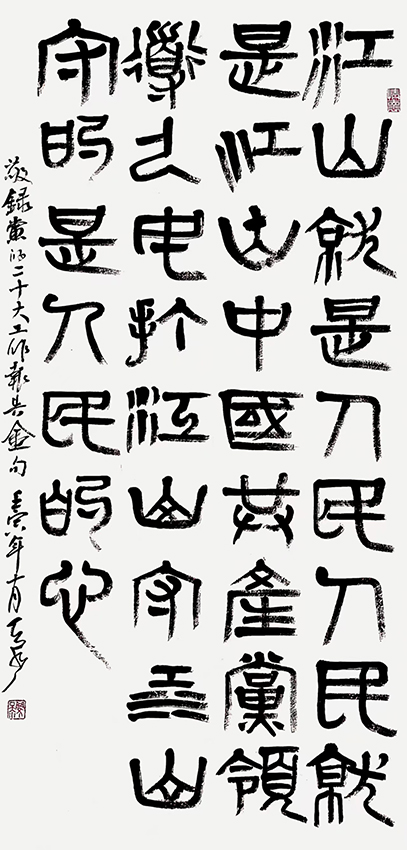 江山就是人民人民就
是江山中國共產黨領
導人民打江山守江山
守的是人民的心
敬録黨的二十大工作報告金句 壬寅年